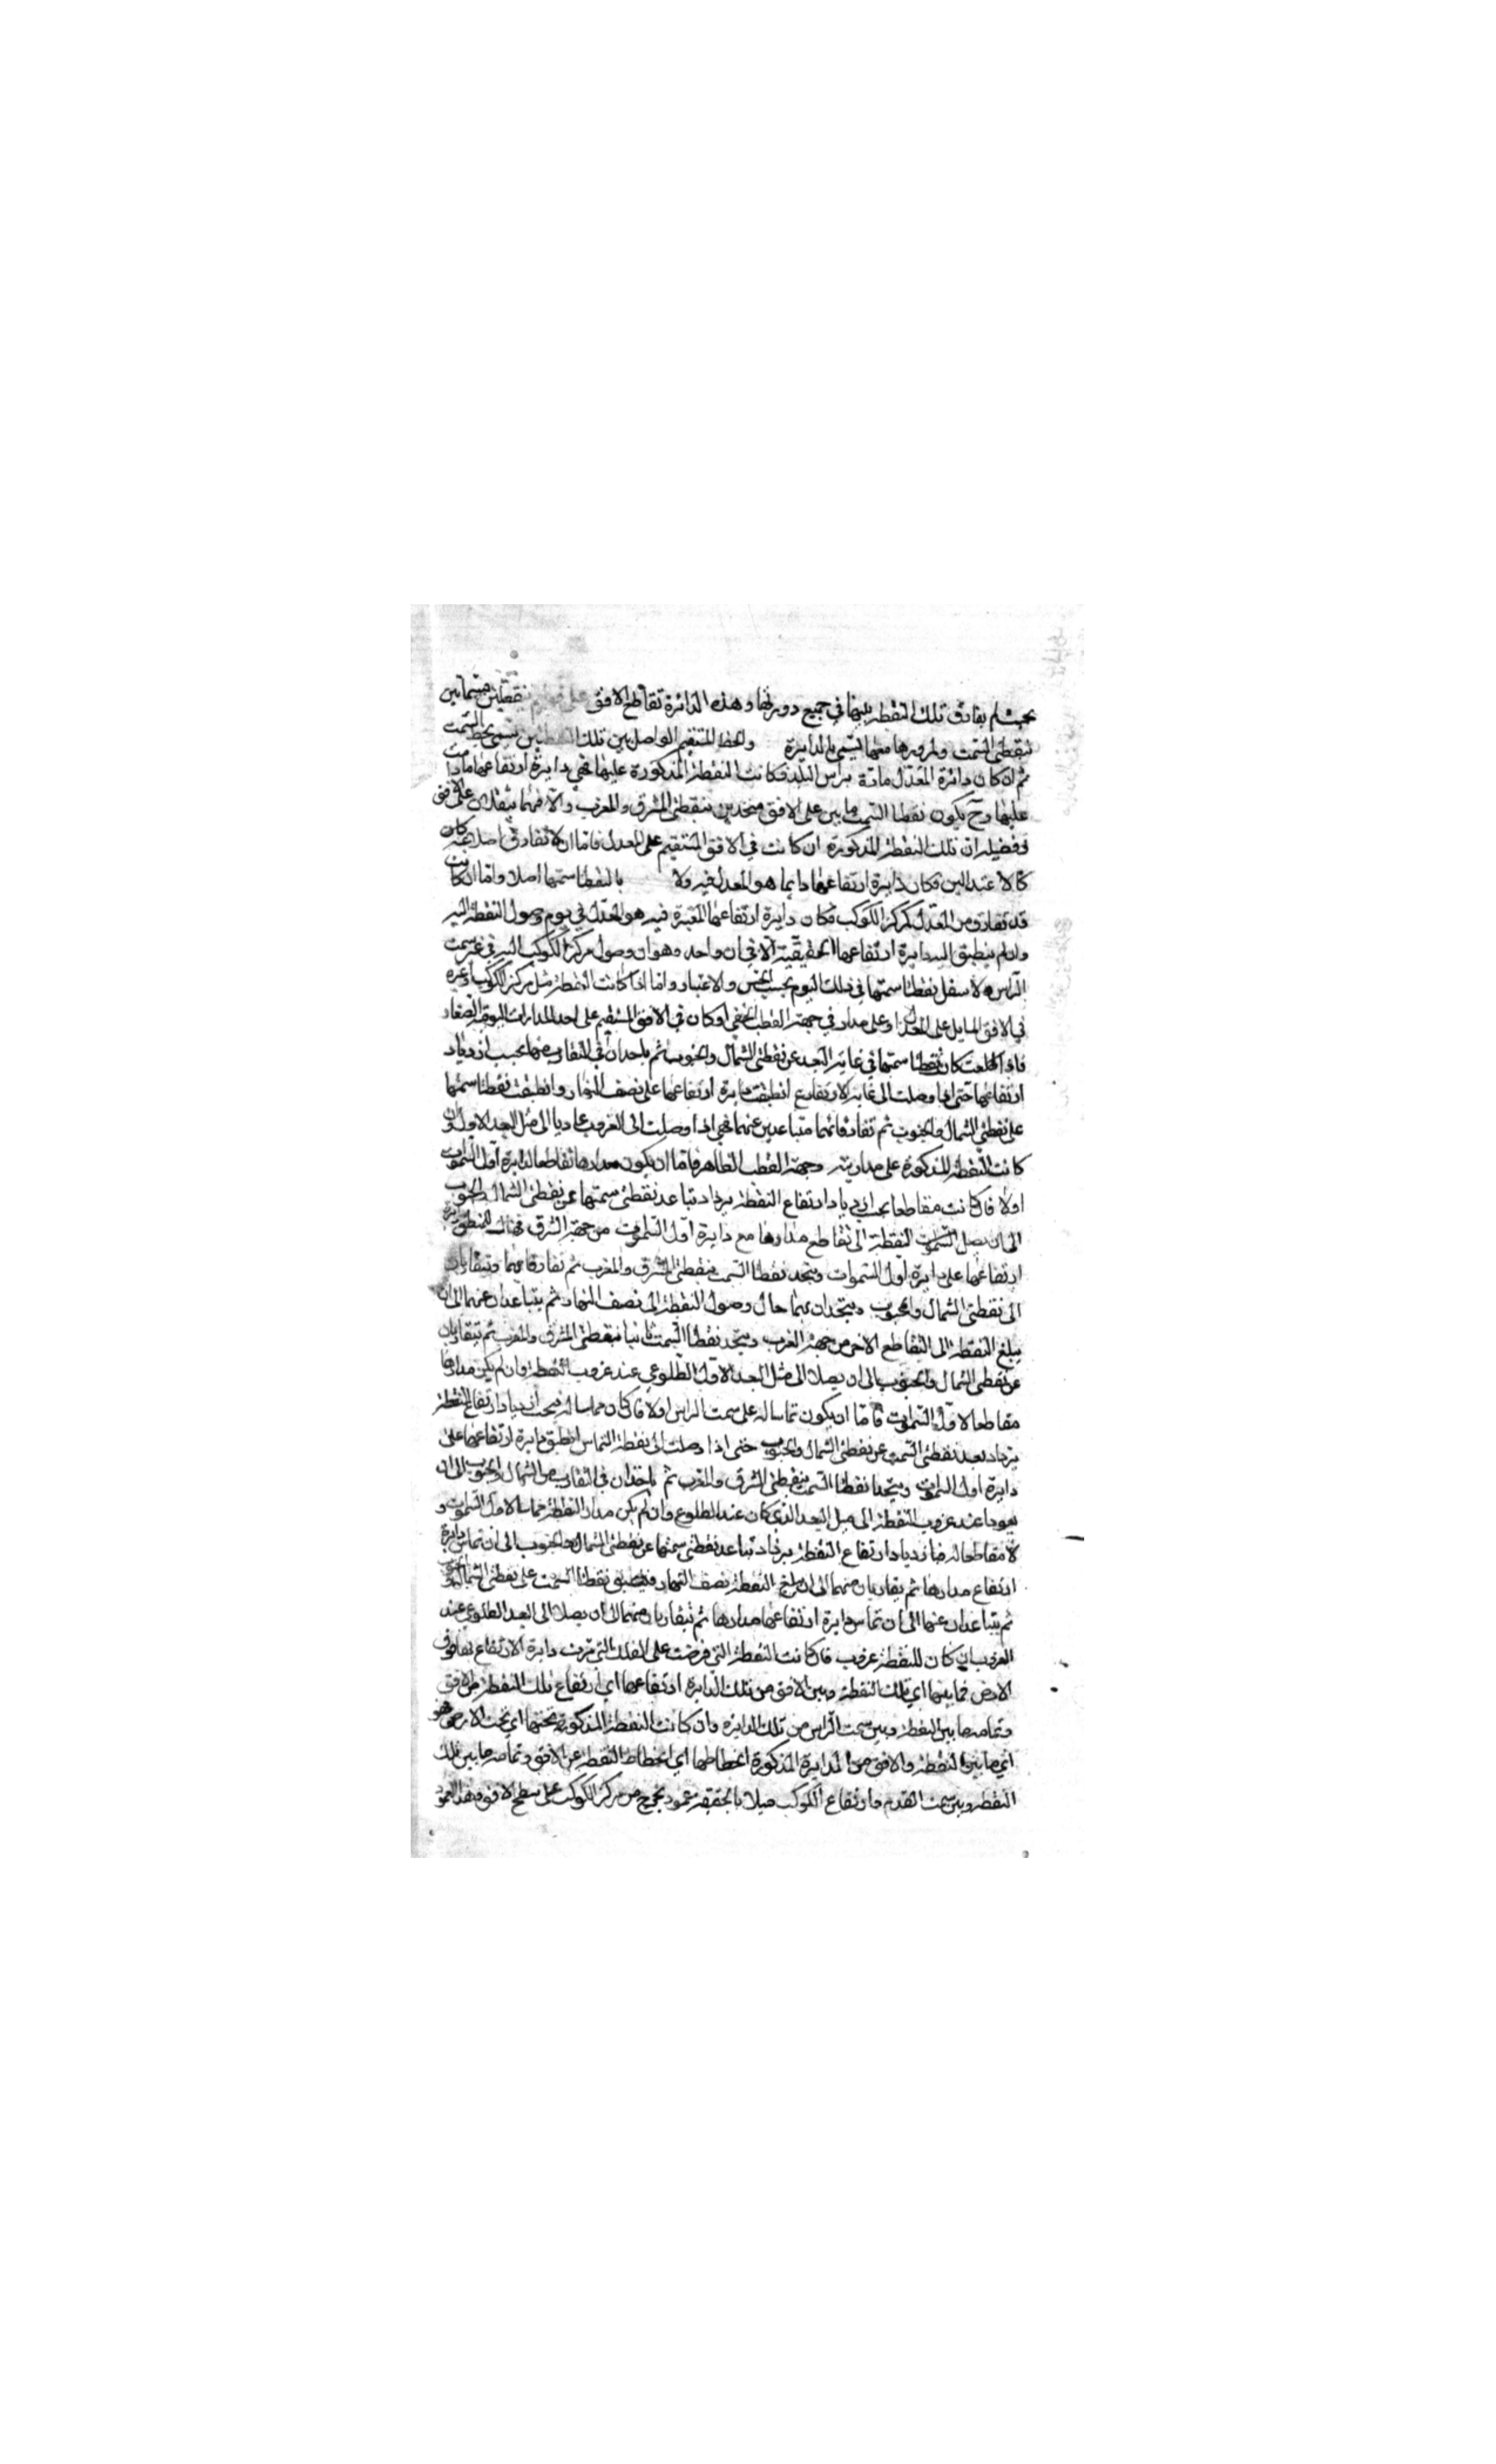 بحيث لم يفارق تلك النقطة بينها في جميع دورتها وهذه الدائرة تقاطع الافق على نقطتين تسميان
بنقطتى السمت ولمرورها معهما تسمى بالدايرة والخط المستقيم الواصل بين تلك النقطتين يسمى بخط السمت
ثم ان كان دائرة المعدل مارة براس البلد فكانت النقطة المذكورة عليها فهي دايرة ارتفاعها ما دامت
عليها وح يكون نقطتا السمت على الافق متحدين بنقطتى المشرق والمغرب والا فهما على الافق
ان تلك النقطة المذكورة ان كانت في الافق المستقيم على المعدل فاما ان لا تفارق اصلا
كالاعتدالين فكان دايرة ارتفاعها دايما هو المعدل لا غير ولا نقطتا سمتها اصلا واما ان كانت
قد تفارق من المعدل كمركز الكوكب فكان دايرة ارتفاعها المعتبرة فيه هو المعدل في يوم وصول النقطة اليه
وان لم ينطبق اليه دايرة ارتفاعها الحقيقية الا في ان واحد وهو ان وصول مركز الكوكب اليه في غير سمت
الراس ولا سفل نقطتا سمتها في ذلك اليوم بحسب الحس والاعتبار واما اذا كانت النقطة مثل مركز الكوكب وغيره
في الافق المايل على المعدل او على مدار في جهة القطب الخفي او كان في الافق المستقيم على احد المدارات اليومية الصغار
فاذا طلعت كان نقطتا سمتها في غاية البعد عن نقطتى الشمال والجنوب ثم ياخذان في التقارب منهما بحسب ازدياد
ارتفاعها حتى اذا وصلت الى غاية الارتفاع انطبقت دايرة ارتفاعها على نصف النهار وانطبقت نقطتا سمتها
على نقطتى الشمال والجنوب ثم تفارقانهما متباعدين عنهما فهي اذا وصلت الى الغروب عاد الى مثل البعد الاول وان
كانت النقطة المذكورة على مدار في جهة القطب الظاهر فاما ان يكون مدارها مقاطعا لدايرة اول السموات
اولا فان كانت مقاطعا بحسب ازدياد ارتفاع النقطة يزداد تباعد نقطتى سمتها عن نقطتى الشمال والجنوب
الى ان يصل النقطة الى تقاطع مدارها مع دايرة اول السموات من جهة الشرق فهناك ينطبق دايرة
ارتفاعها على دايرة اول السموات ويتحد نقطتا السمت بنقطتى المشرق والمغرب ثم تفارقانهما ويتقاربان
الى نقطتى الشمال والجنوب ويتحدان بهما حال وصول النقطة الى نصف النهار ثم يتباعدان عنهما الى ان
يبلغ النقطة الى التقاطع الاخر من جهة الغرب ويتحد نقطتا السمت ثانيا بنقطتى المشرق والمغرب ثم يتقاربان
عن نقطتى الشمال والجنوب الى ان يصلا الى مثل البعد الاول الطلوعي عند غروب النقطة وان لم يكن مدارها
مقاطعا لاول السموات فاما ان يكون مماسا له على سمت الراس اولا فان كان مماسا له فبحسب ازدياد ارتفاع النقطة
يزداد بعد نقطتى السمت عن نقطتى الشمال والجنوب حتى اذا وصلت الى نقطة التماس انطبق دايرة ارتفاعها على
دايرة اول السموات ويتحدا نقطتا السمت بنقطتى الشرق والغرب ثم ياخذان في التقارب من الشمال والجنوب الى ان
يعودا عند غروب النقطة الى مثل البعد الذي كان عند الطلوع وان لم يكن مدار النقطة مماسا لاول السموات و
لا مقاطعا له فبازدياد ارتفاع النقطة يزداد تباعد نقطتى سمتها عن نقطتى الشمال والجنوب الى ان تماس دايرة
ارتفاع مدارها ثم يتقاربان منهما الى ان يبلغ النقطة نصف النهار فينطبق نقطتا السمت على نقطتى الشمال والجنوب
ثم يتباعدان عنهما الى ان تماس دايرة ارتفاعها مدارها ثم يتقاربان منهما الى ان يصلا الى البعد الطلوعي عند
الغروب ان كان للنقطة غروب فان كانت النقطة التي فرضت على الفلك التي مرت دايرة الارتفاع بها فوق
الارض فما بينها اي تلك النقطة وبين الافق من تلك الدايرة ارتفاعها اي ارتفاع تلك النقطة من الافق
وتمامه ما بين النقطة وبين سمت الراس من تلك الدايرة وان كانت النقطة المذكورة تحتها اي تحت الارض فهو
اي ما بين النقطة والافق من الدايرة المذكورة انحطاطها اي انحطاط النقطة عن الافق وتمامه ما بين تلك
النقطة وبين سمت القدم وارتفاع الكوكب مثلا بالحقيقة عمود يخرج من مركز الكوكب على سطح الافق وهذا العمود